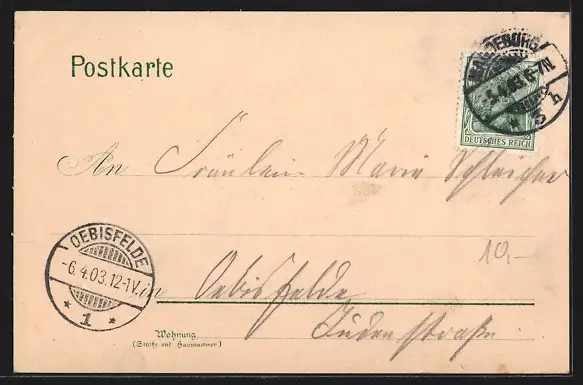 Postkarte
MAGDEBURG
5.4.03. 6-7N.
* 5 h
DEUTSCHES REICH
An Fräulein Marie Schleicher
OEBISFELDE
-6.4.03.12-1V.
* 1 *
10,-
in Oebisfelde
Judenstraße
Wohnung
(Straße und Hausnummer)